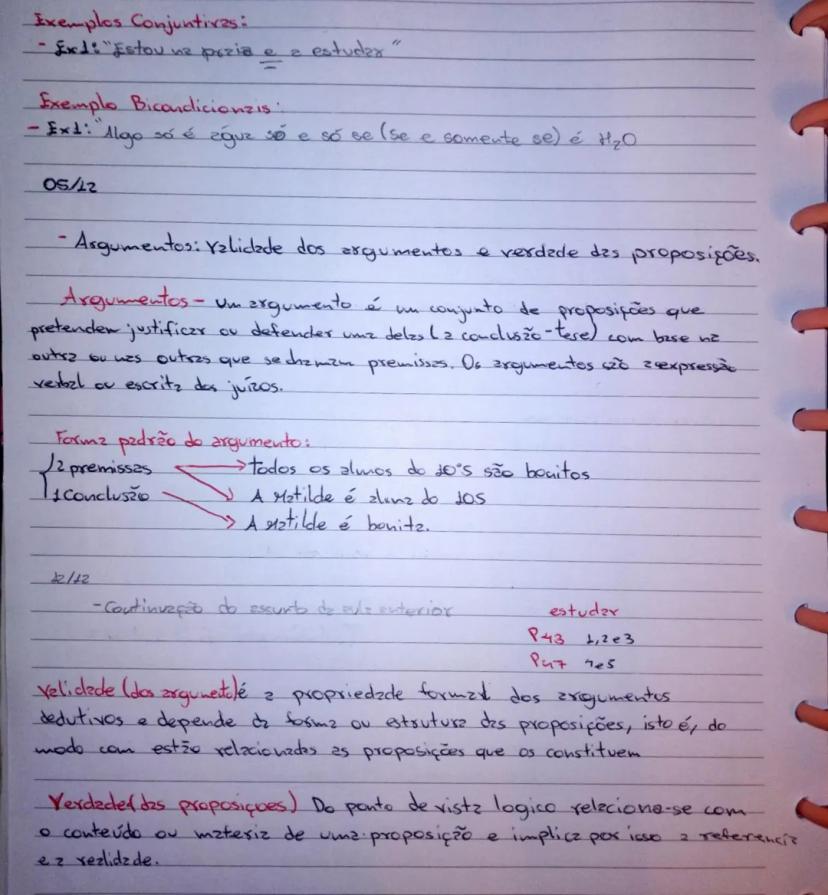 Exemplos Conjuntivas:
- Ex1: "Estou na praia e a estudar"
Exemplo Bicondicionais:
- Ex1: "Algo só é água só e só se (se e somente se) é H₂O
05/12
- Argumentos: Validade dos argumentos e verdade das proposições.
Argumentos - Um argumento é um conjunto de proposições que
pretendem justificar ou defender uma delas (a conclusão-tese) com base na
outra ou nas outras que se chamam premissas. Os argumentos são a expressão
verbal ou escrita dos juízos.
Forma padrão do argumento:
2 premissas → todos os alunos do 10ºS são bonitos
1 conclusão A Matilde é aluna do 10S
A Matilde é bonita.
12/12
- Continuação do assunto da aula anterior
estudar
P43 1,2 e 3
P47 4 e 5
Validade (dos argumeto) é a propriedade formal dos argumentos
dedutivos e depende da forma ou estrutura das proposições, isto é, do
modo com estão relacionadas as proposições que os constituem
Verdade (das proposiçoes) Do ponto de vista logico relaciona-se com
o conteúdo ou materia de uma proposição e implica por isso a referencia
e a realidade.